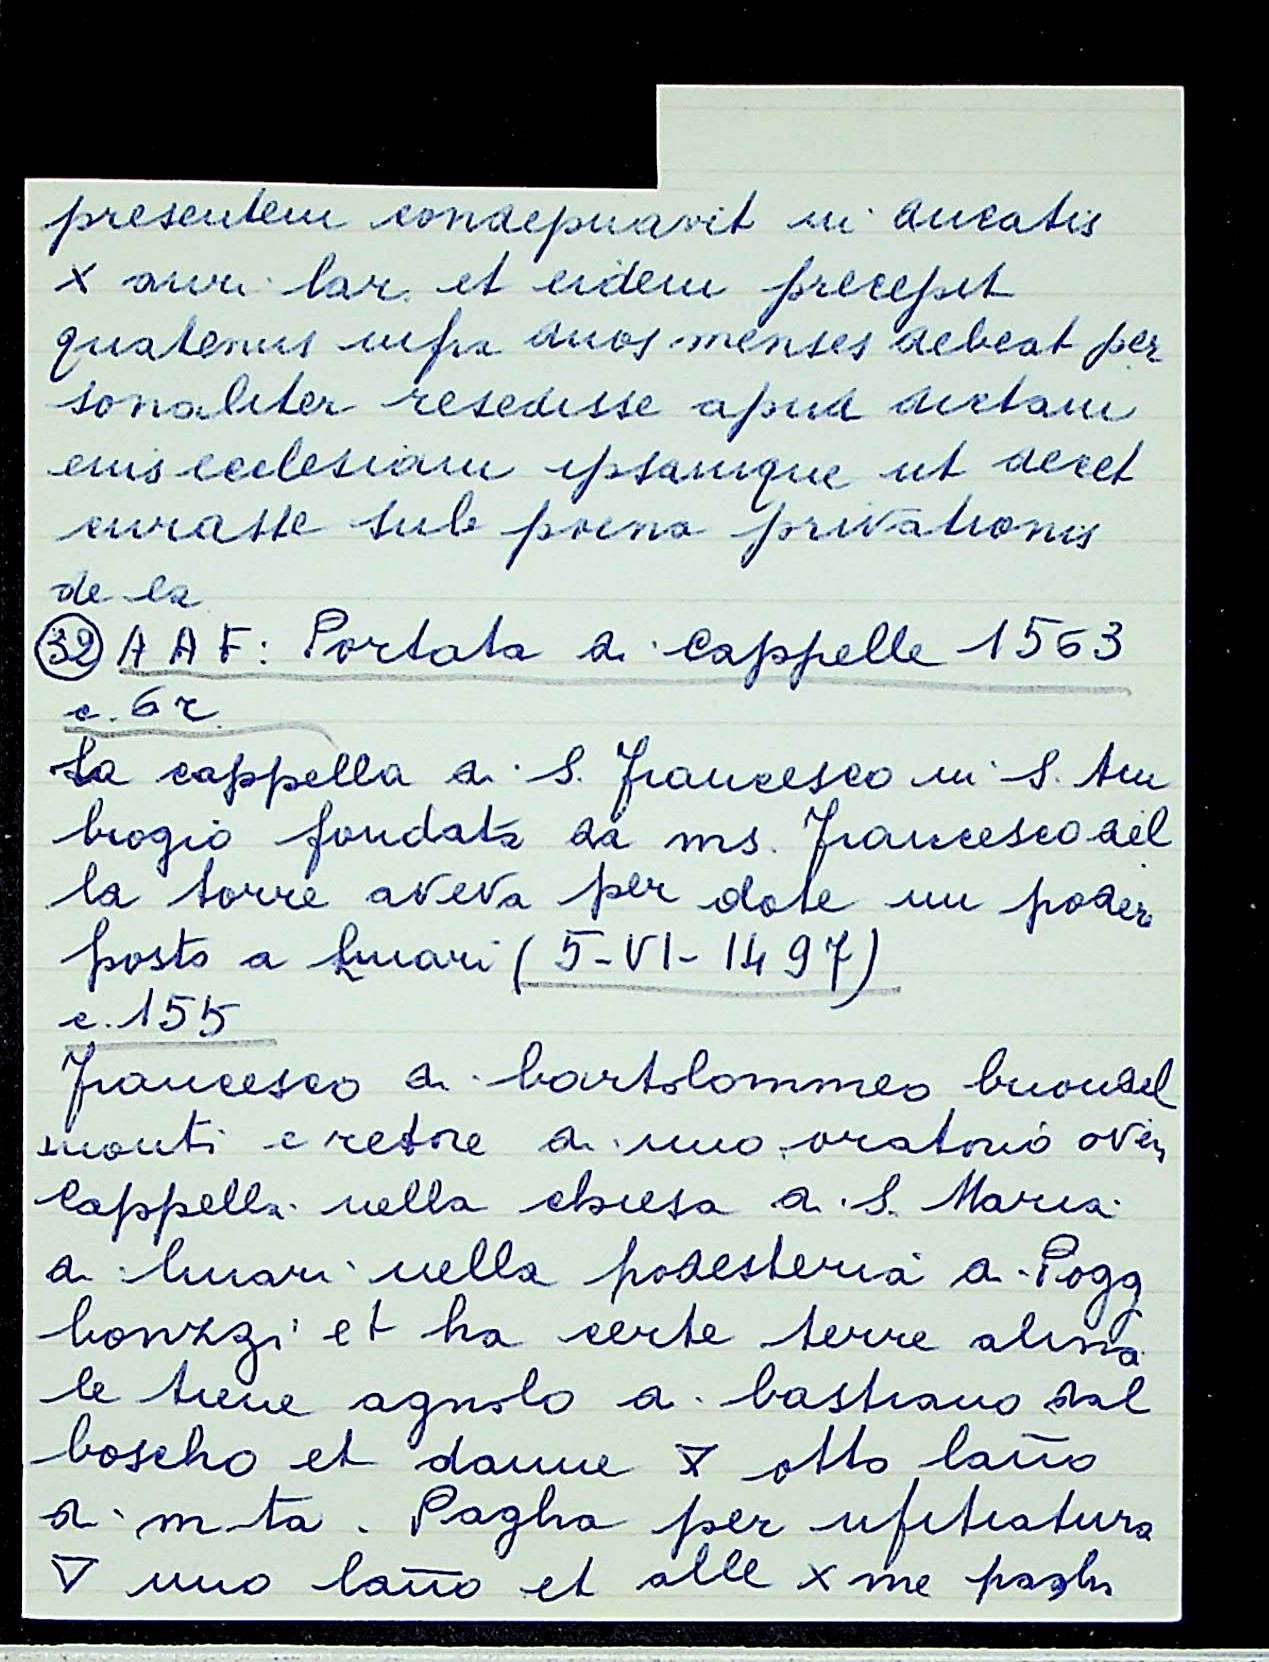 presentem condepnavit in ducatis
x auri lar. et eidem precepit
quatenus infra duos menses debeat per
sonaliter resedisse apud dictam
eius ecclesiam ipsamque ut decet
curasse sub poena privationis
de ea
32 AAF: Portata di cappelle 1563
c. 6r
La cappella di S. Francesco in S. Am
brogio fondata da ms. Francesco del
la torre aveva per dote un poder
posto a Linari (5-VI-1497)
c. 155
Francesco di bartolommeo buondel
monti e retore di uno oratorio over
Cappella nella chiesa di S. Maria
di linari nella podesteria di Pogg
bonzzi et ha certe terre
le tiene agnolo di bastiano dal
boscho et danne ∇ otto laño
di m ta. Pagha per ufitiatura
∇ uno laño et alle x me pagh